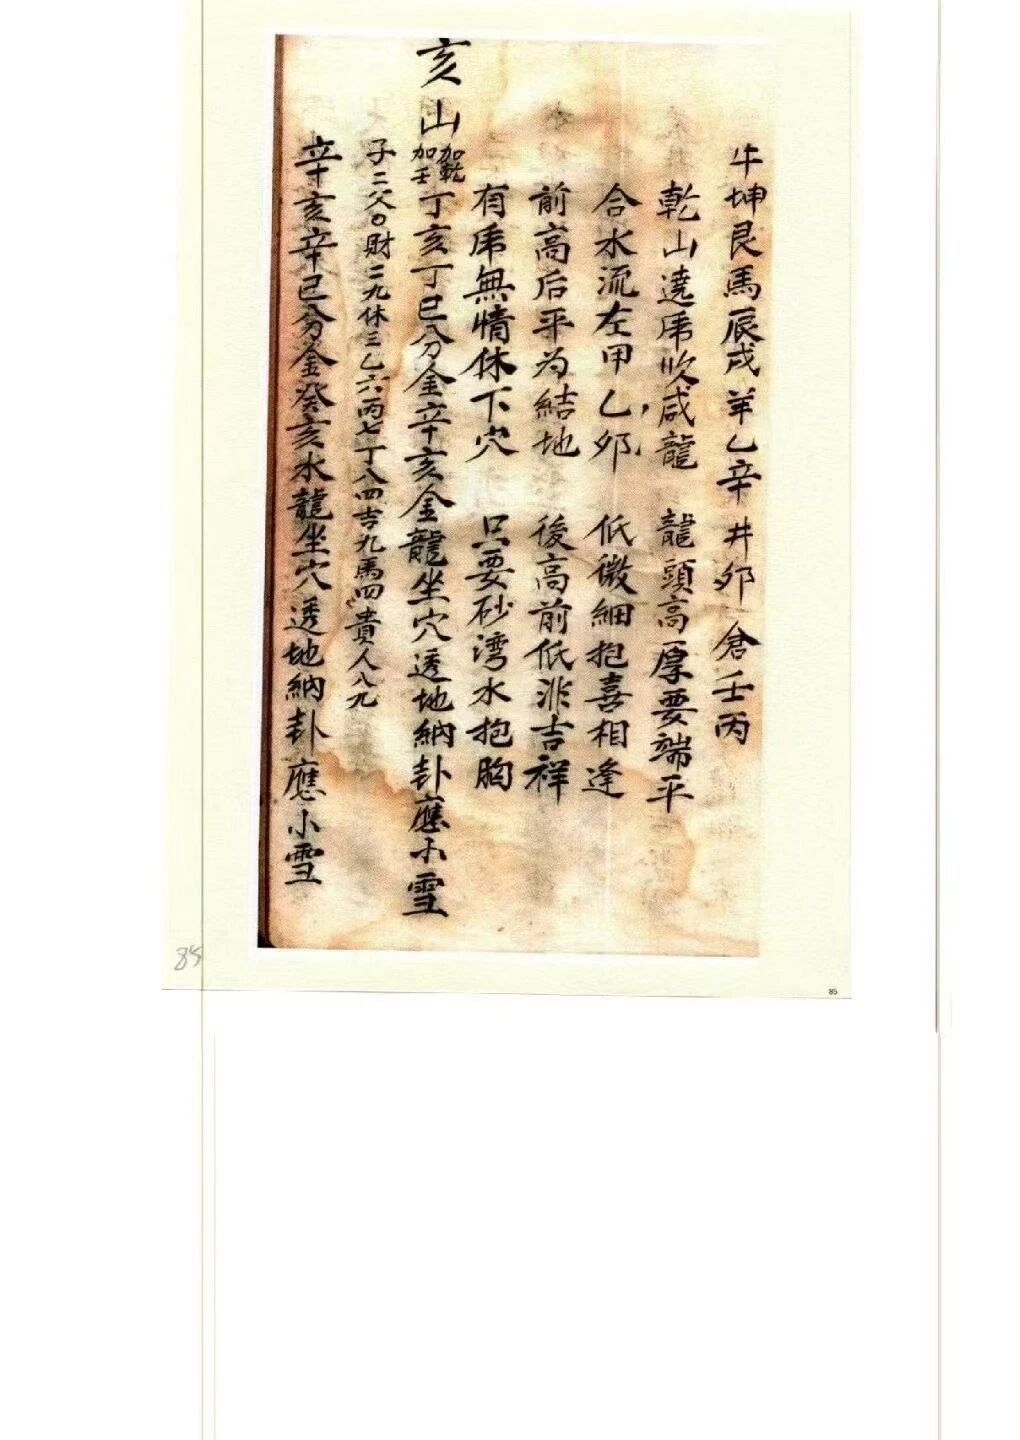 牛坤艮馬辰戌羊乙辛井卯倉壬丙
乾山遶席吹咸龍 龍頭高厚要端平
合水流左甲乙卯 低微細抱喜相逢
前高后平为結地 後高前低非吉祥
有席無情休下穴 只要砂湾水抱胸
亥山加乾加壬丁亥丁巳分金辛亥金龍坐穴透地納卦應小雪
子二父〇財二九休三乙六丙七丁八四吉九馬四貴人八九
辛亥辛巳分金癸亥水龍坐穴透地納卦應小雪
85
85